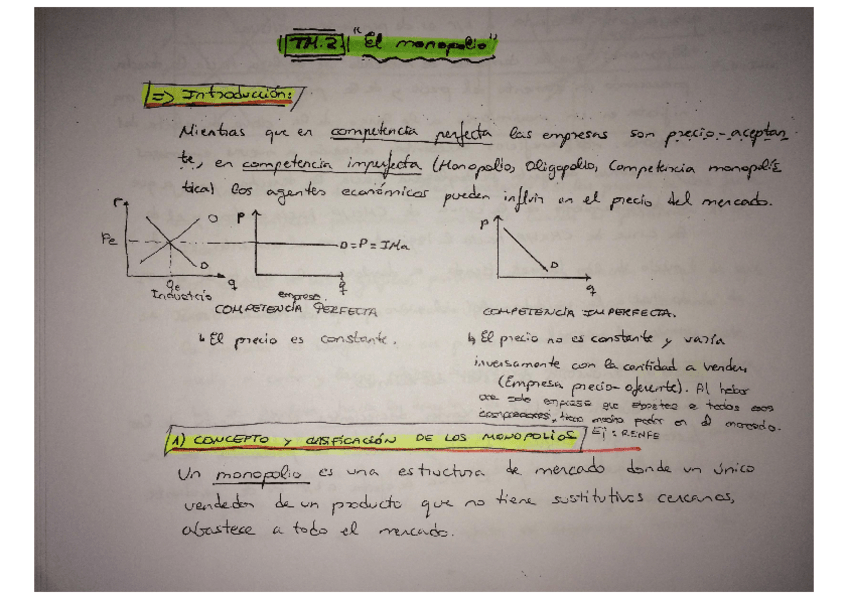 TM.2 "El monopolio"
=> Introducción:
Mientras que en competencia perfecta las empresas son precio-aceptan
te, en competencia imperfecta (Monopolio, Oligopolio, Competencia monopolís
tica) los agentes económicos pueden influir en el precio del mercado.
P O P P
Pe D=P=IMa
D D
qe q q q
Industria empresa
COMPETENCIA PERFECTA COMPETENCIA IMPERFECTA.
↳ El precio es constante. ↳ El precio no es constante y varía
inversamente con la cantidad a vender
(Empresa precio-oferente). Al haber
una sola empresa que abastece a todos esos
compradores, tiene mucho poder en el mercado.
1) CONCEPTO y CLASIFICACIÓN DE LOS MONOPOLIOS Ej: RENFE
Un monopolio es una estructura de mercado donde un único
vendedor de un producto que no tiene sustitutivos cercanos,
abastece a todo el mercado.